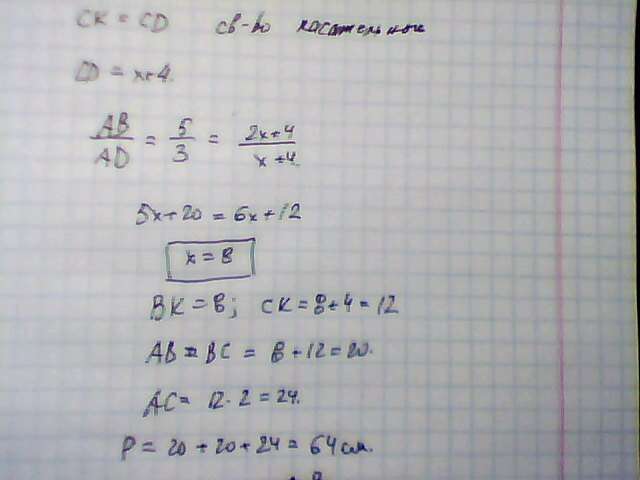 CK = CD св-во касательных
CD = x+4.
AB/AD = 5/3 = 2x+4/x+4.
5x+20 = 6x+12
x = 8
BK = 8; CK = 8+4 = 12
AB = BC = 8+12 = 20.
AC = 12·2 = 24.
P = 20+20+24 = 64 см.